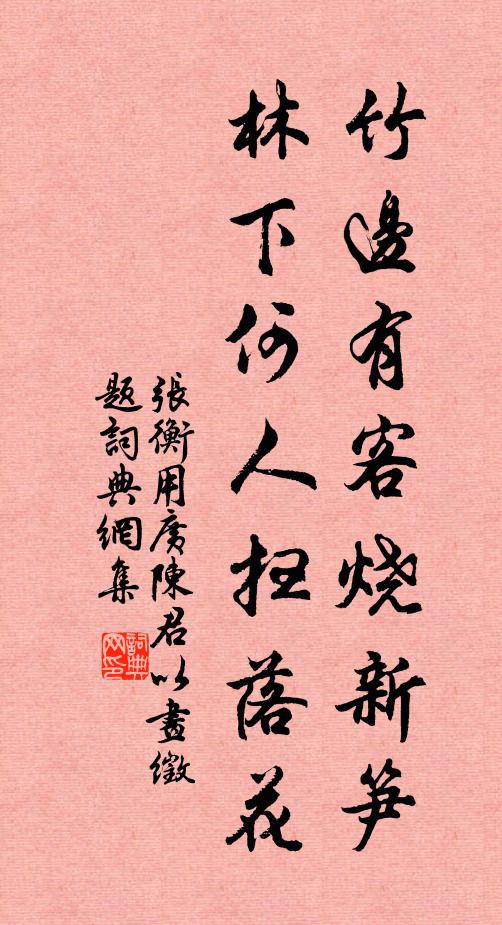 竹邊有客烧新笋
林下何人扫落花
張衡用廣陳君以畫徵
题詞典網集
詞典网印